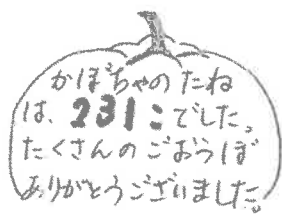 かぼちゃのたね
は、231こでした。
たくさんのごおうぼ
ありがとうございました。